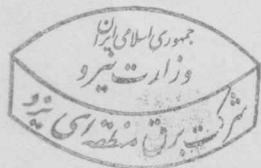 جمهوری اسلامی ایران
وزارت نیرو
شرکت برق منطقه ای یزد